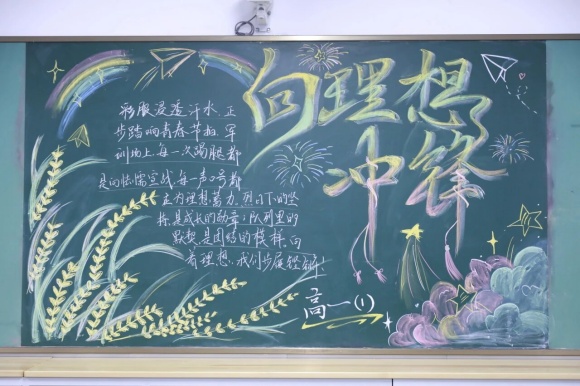 向理想
冲锋
彩服浸透汗水,正
步踏响青春节拍.军
训场上,每一次踢腿都
是向怯懦宣战,每一声口号都
在为理想蓄力.烈日下的坚
持,是成长的勋章;队列里的
默契,是团结的模样.向
着理想,我们步履铿锵!
高一(1)